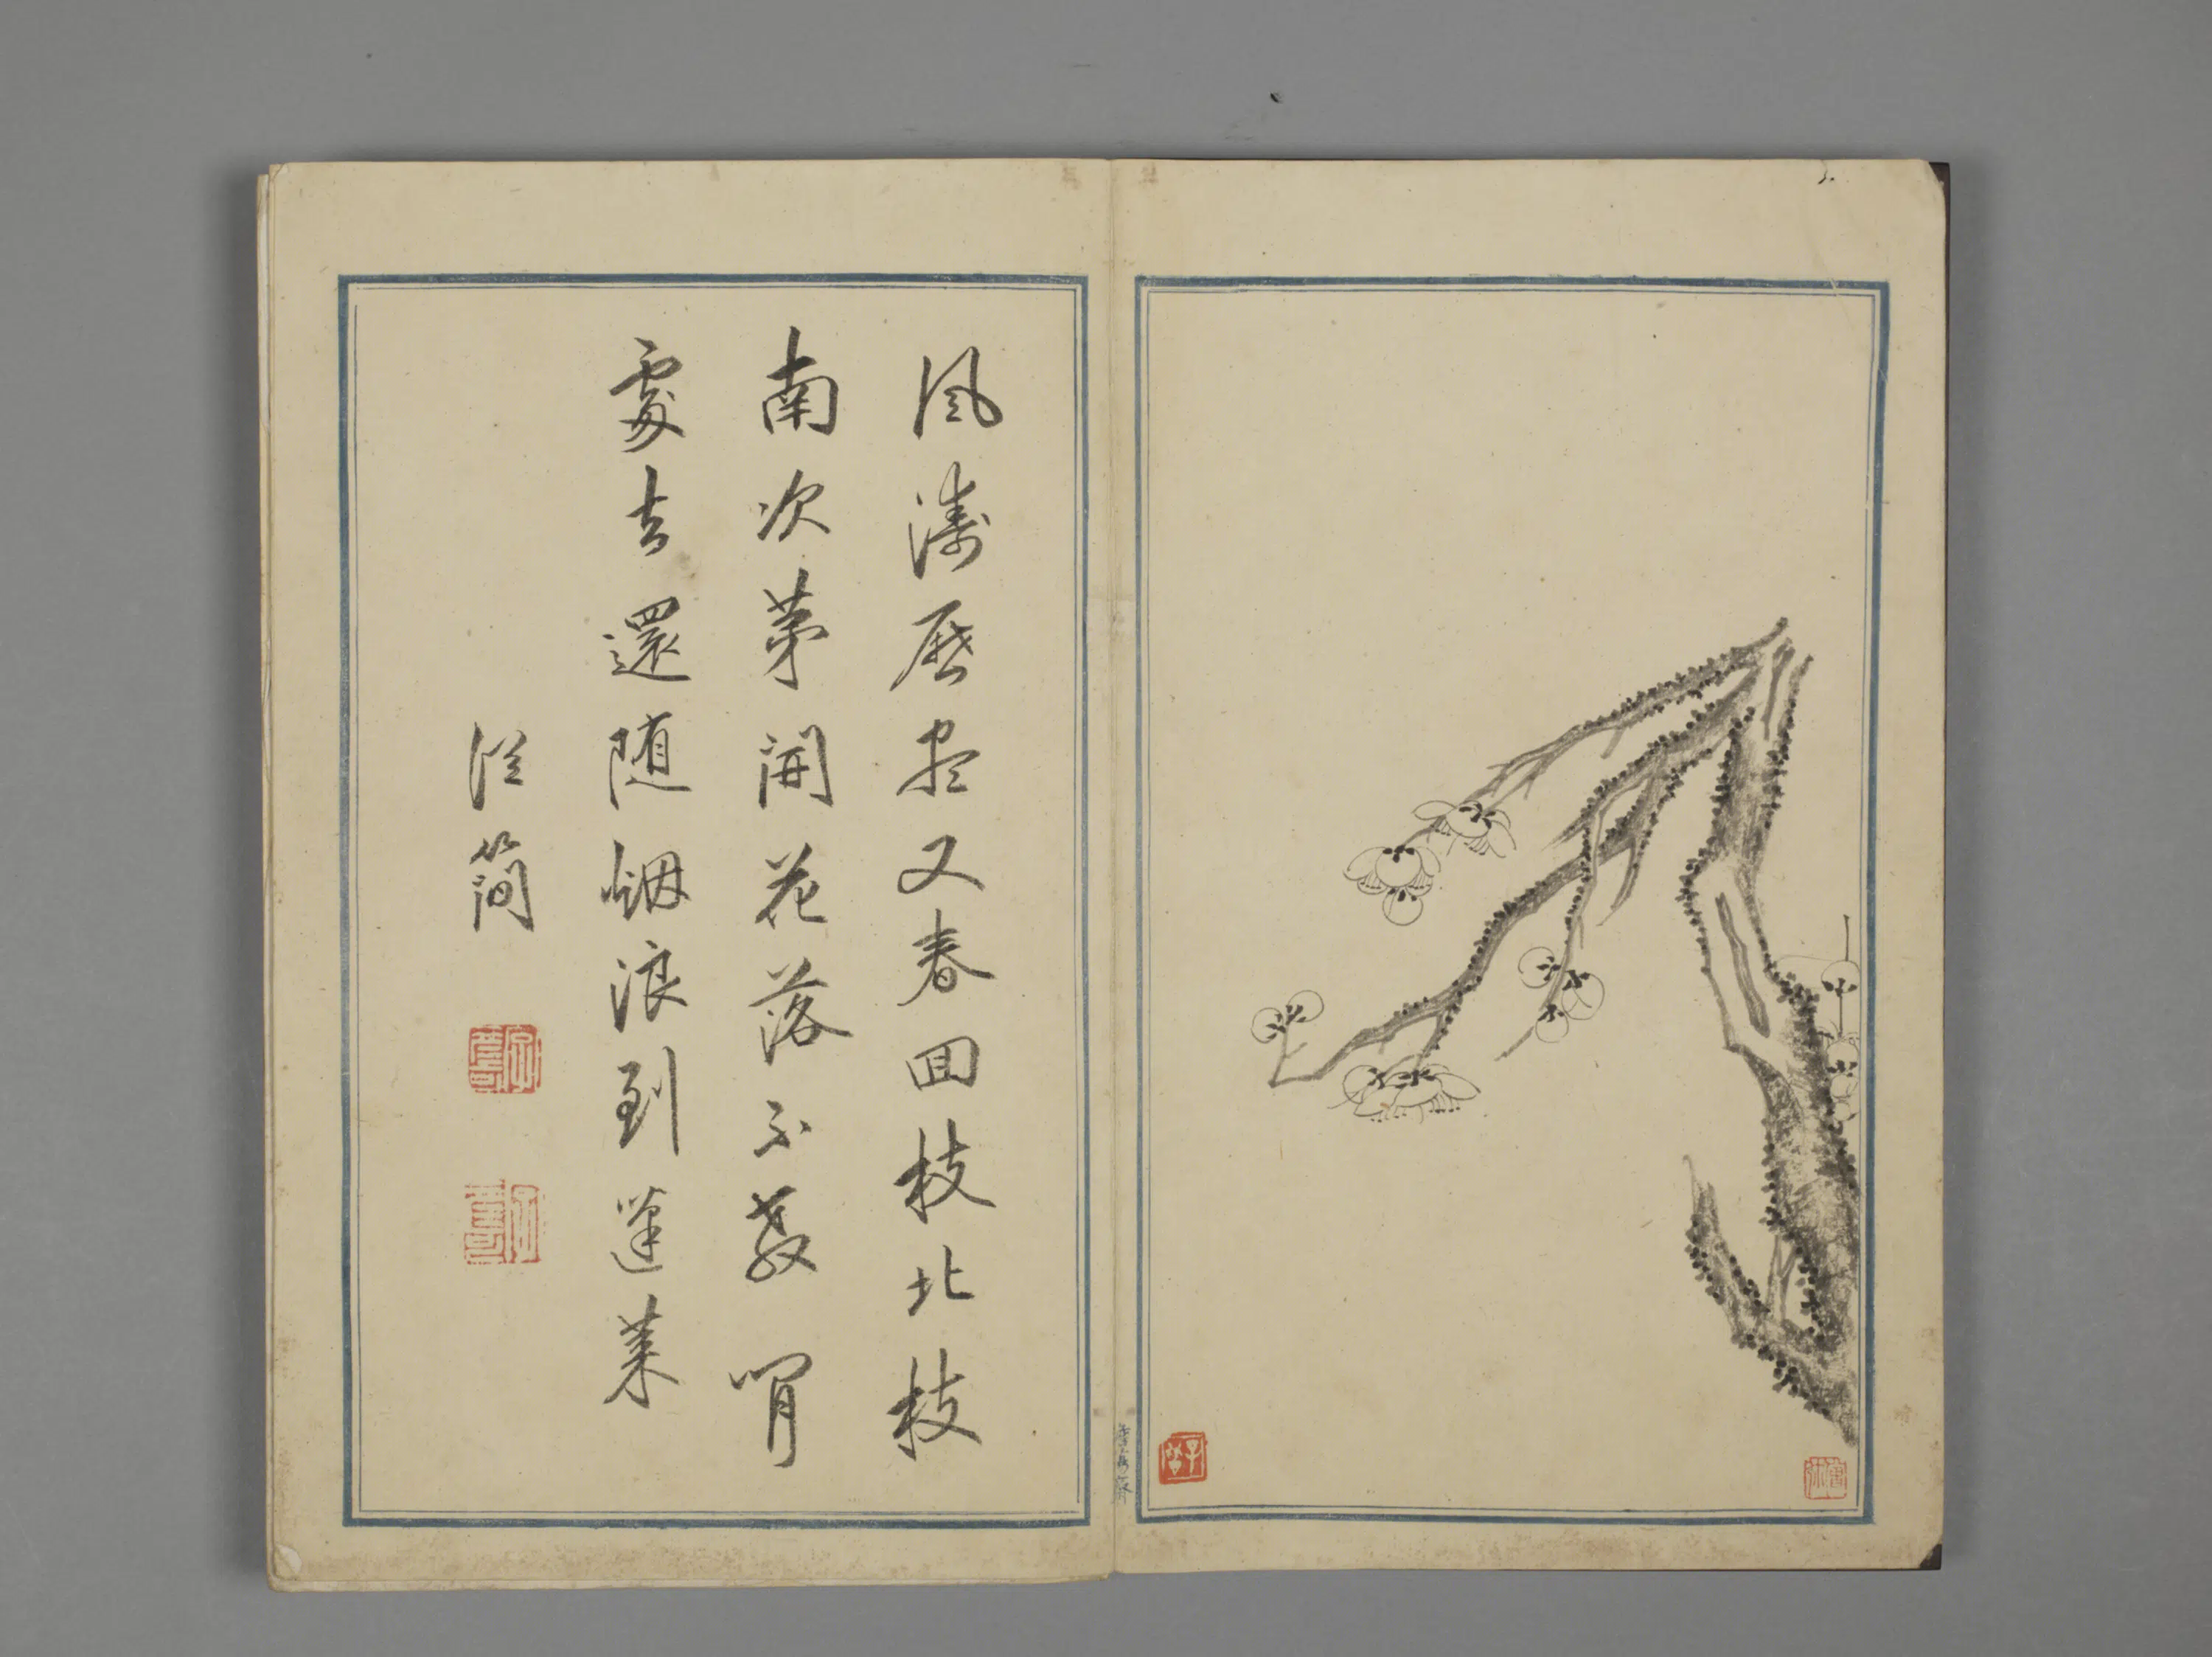 風濤歷盡又春回枝北枝
南次第開花落不教閒
處去還随烟浪到蓬萊
從簡